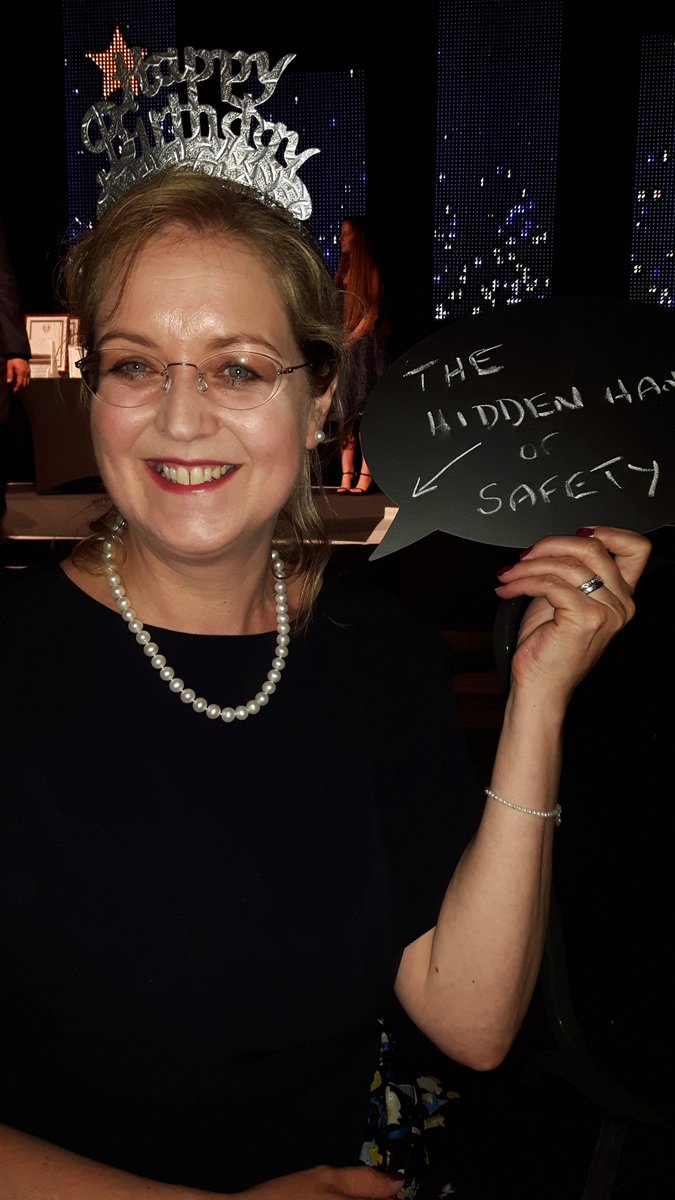 Happy
Birthday
THE
HIDDEN HAN
OF
SAFETY